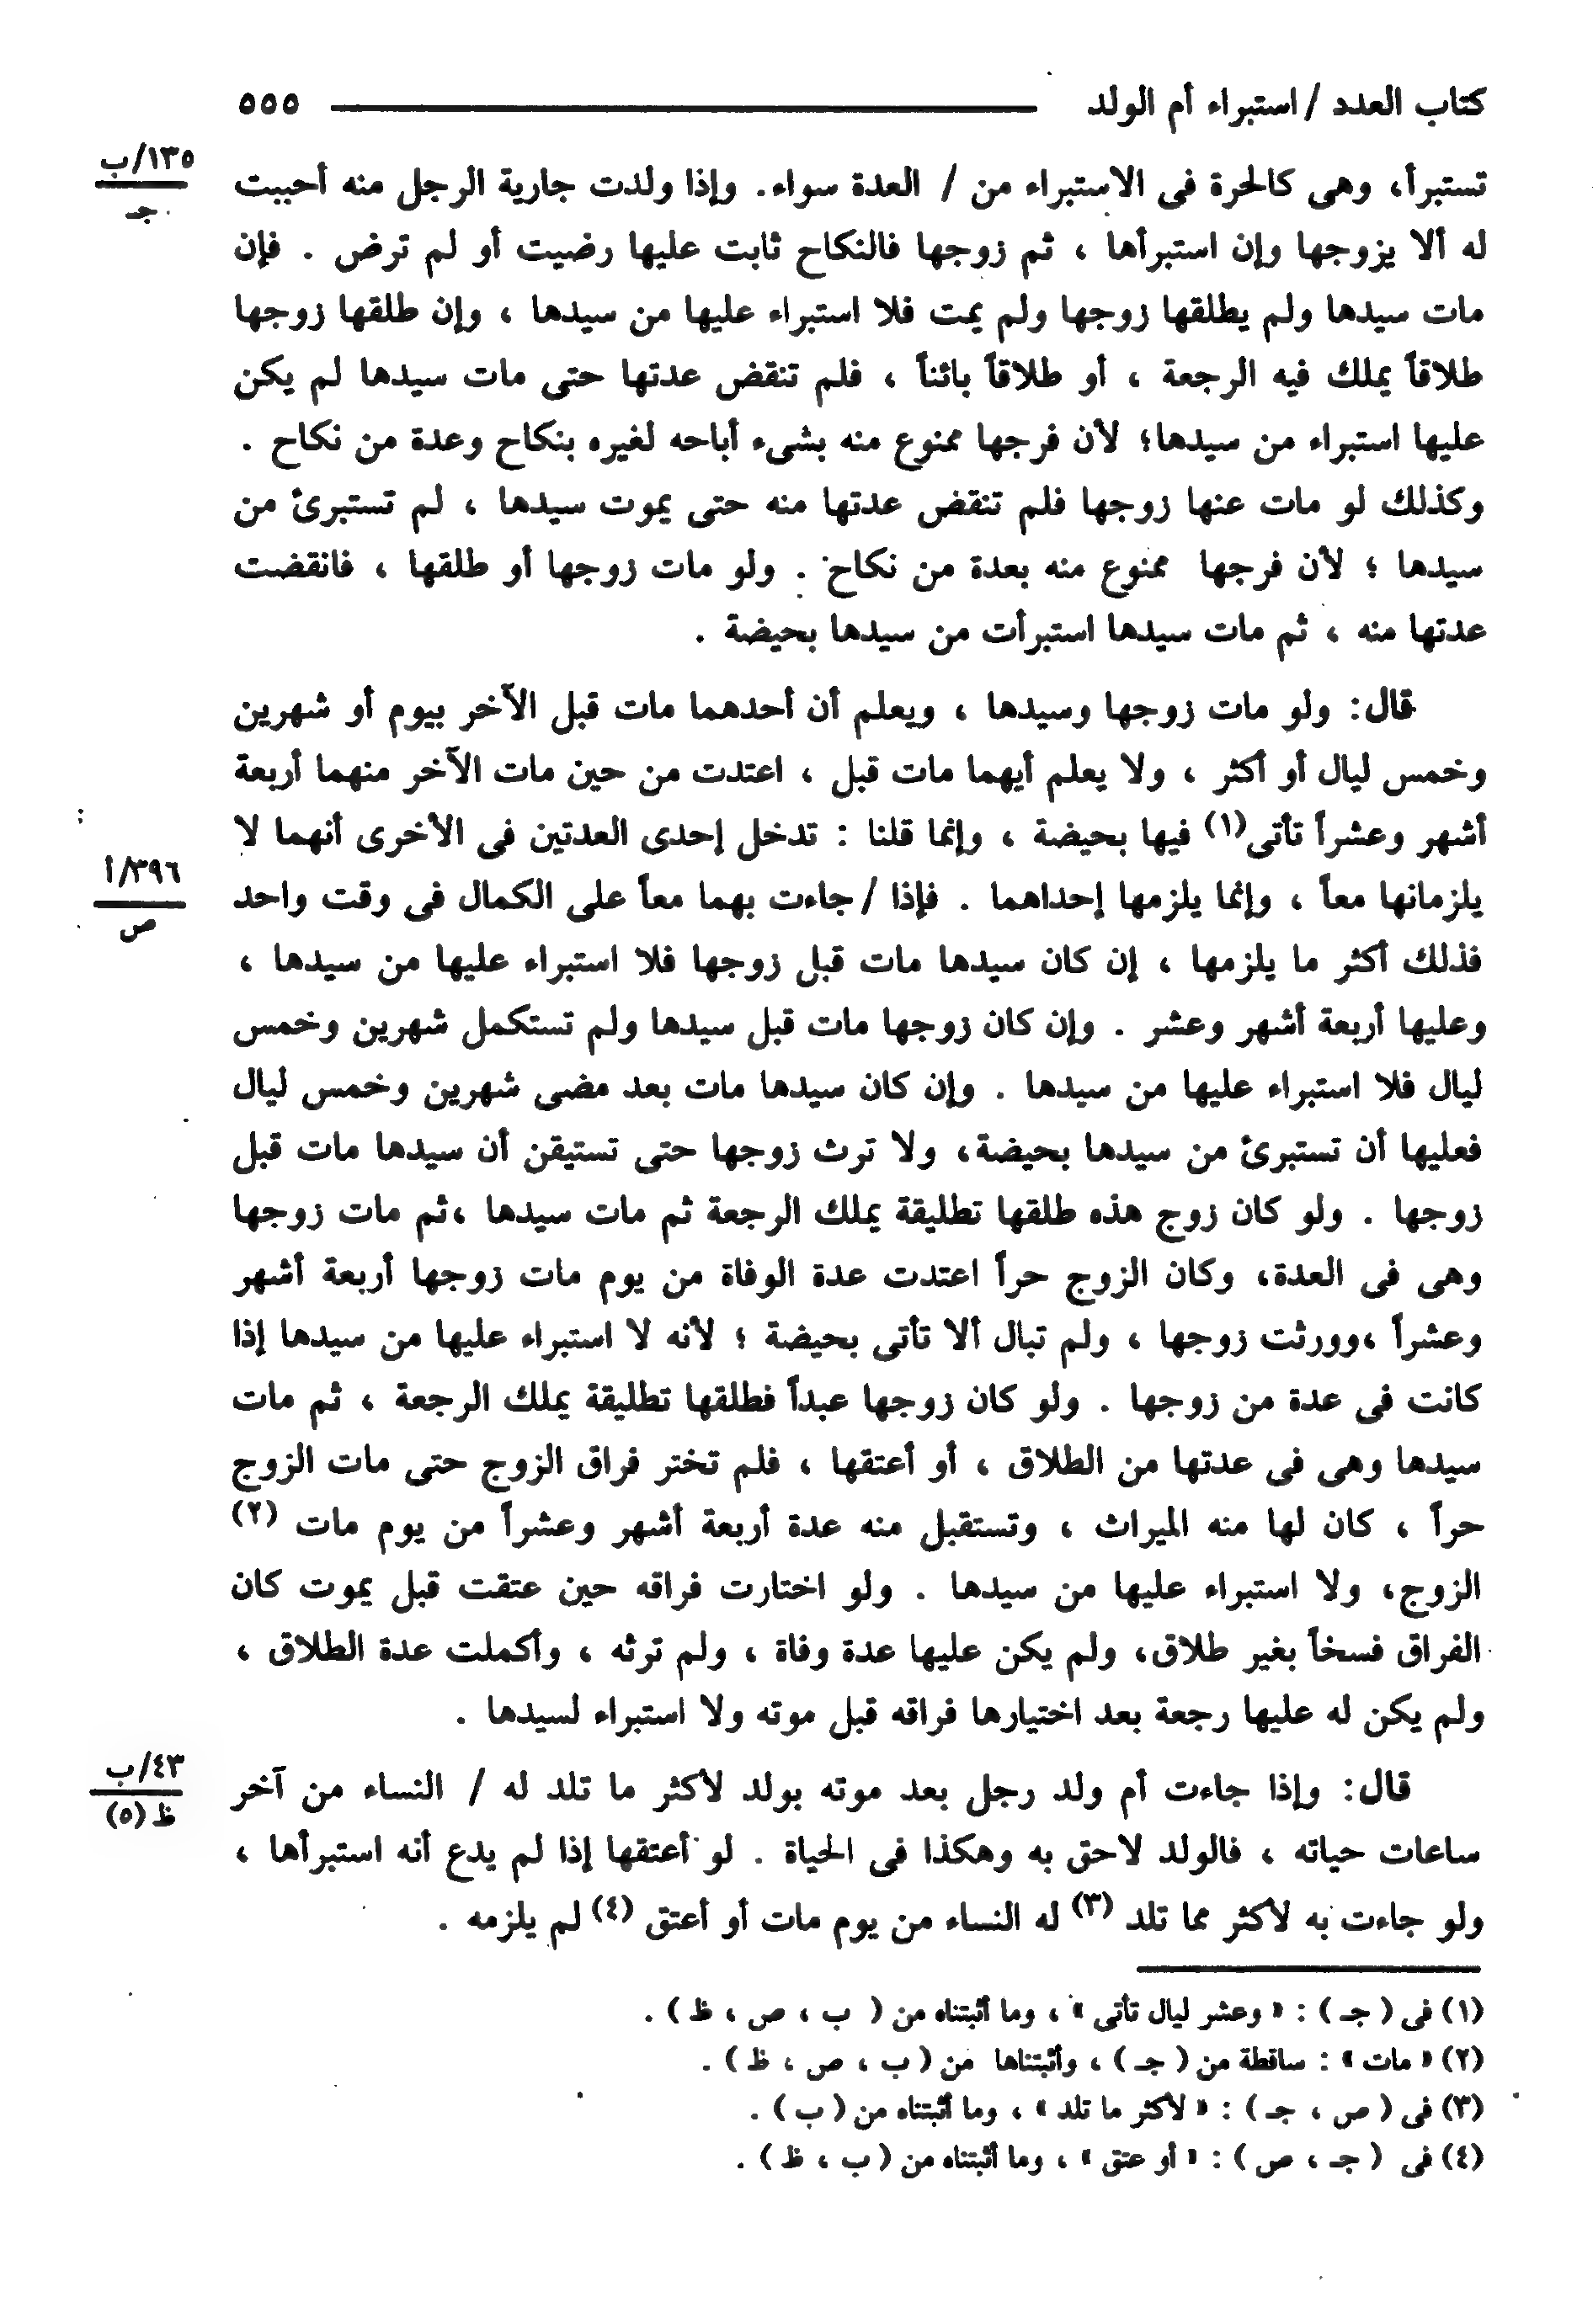 كتاب العدد / استبراء أم الولد ٥٥٥
١٣٥/ب
جـ
تستبرأ، وهى كالحرة فى الاستبراء من / العدة سواء. وإذا ولدت جارية الرجل منه أحببت
له ألا يزوجها وإن استبرأها ، ثم زوجها فالنكاح ثابت عليها رضيت أو لم ترض . فإن
مات سيدها ولم يطلقها زوجها ولم يمت فلا استبراء عليها من سيدها ، وإن طلقها زوجها
طلاقاً يملك فيه الرجعة ، أو طلاقاً بائناً ، فلم تنقض عدتها حتى مات سيدها لم يكن
عليها استبراء من سيدها؛ لأن فرجها ممنوع منه بشىء أباحه لغيره بنكاح وعدة من نكاح .
وكذلك لو مات عنها زوجها فلم تنقض عدتها منه حتى يموت سيدها ، لم تستبرئ من
سيدها ؛ لأن فرجها ممنوع منه بعدة من نكاح . ولو مات زوجها أو طلقها ، فانقضت
عدتها منه ، ثم مات سيدها استبرأت من سيدها بحيضة .
قال: ولو مات زوجها وسيدها ، ويعلم أن أحدهما مات قبل الآخر بيوم أو شهرين
وخمس ليال أو أكثر ، ولا يعلم أيهما مات قبل ، اعتدت من حين مات الآخر منهما أربعة
أشهر وعشراً تأتى(١) فيها بحيضة ، وإنما قلنا : تدخل إحدى العدتين فى الأخرى أنهما لا
٣٩٦/أ
ص
يلزمانها معاً ، وإنما يلزمها إحداهما . فإذا / جاءت بهما معاً على الكمال فى وقت واحد
فذلك أكثر ما يلزمها ، إن كان سيدها مات قبل زوجها فلا استبراء عليها من سيدها ،
وعليها أربعة أشهر وعشر . وإن كان زوجها مات قبل سيدها ولم تستكمل شهرين وخمس
ليال فلا استبراء عليها من سيدها . وإن كان سيدها مات بعد مضى شهرين وخمس ليال
فعليها أن تستبرئ من سيدها بحيضة، ولا ترث زوجها حتى تستيقن أن سيدها مات قبل
زوجها . ولو كان زوج هذه طلقها تطليقة يملك الرجعة ثم مات سيدها ،ثم مات زوجها
وهى فى العدة، وكان الزوج حراً اعتدت عدة الوفاة من يوم مات زوجها أربعة أشهر
وعشراً ،وورثت زوجها ، ولم تبال ألا تأتى بحيضة ؛ لأنه لا استبراء عليها من سيدها إذا
كانت فى عدة من زوجها . ولو كان زوجها عبداً فطلقها تطليقة يملك الرجعة ، ثم مات
سيدها وهى فى عدتها من الطلاق ، أو أعتقها ، فلم تختر فراق الزوج حتى مات الزوج
حراً ، كان لها منه الميراث ، وتستقبل منه عدة أربعة أشهر وعشراً من يوم مات (٢)
الزوج، ولا استبراء عليها من سيدها . ولو اختارت فراقه حين عتقت قبل يموت كان
الفراق فسخاً بغير طلاق، ولم يكن عليها عدة وفاة ، ولم ترثه ، وأكملت عدة الطلاق ،
ولم يكن له عليها رجعة بعد اختيارها فراقه قبل موته ولا استبراء لسيدها .
٤٣/ب
ظ (٥)
قال: وإذا جاءت أم ولد رجل بعد موته بولد لأكثر ما تلد له / النساء من آخر
ساعات حياته ، فالولد لاحق به وهكذا فى الحياة . لو أعتقها إذا لم يدع أنه استبرأها ،
ولو جاءت به لأكثر مما تلد (٣) له النساء من يوم مات أو أعتق (٤) لم يلزمه .
(١) فى ( جـ ) : « وعشر ليال تأتى » ، وما أثبتناه من ( ب ، ص ، ظ ) .
(٢) « مات » : ساقطة من ( جـ ) ، وأثبتناها من ( ب ، ص ، ظ ) .
(٣) فى ( ص ، جـ ) : « لأكثر ما تلد » ، وما أثبتناه من ( ب ) .
(٤) فى ( جـ ، ص ) : « أو عتق » ، وما أثبتناه من ( ب ، ظ ) .